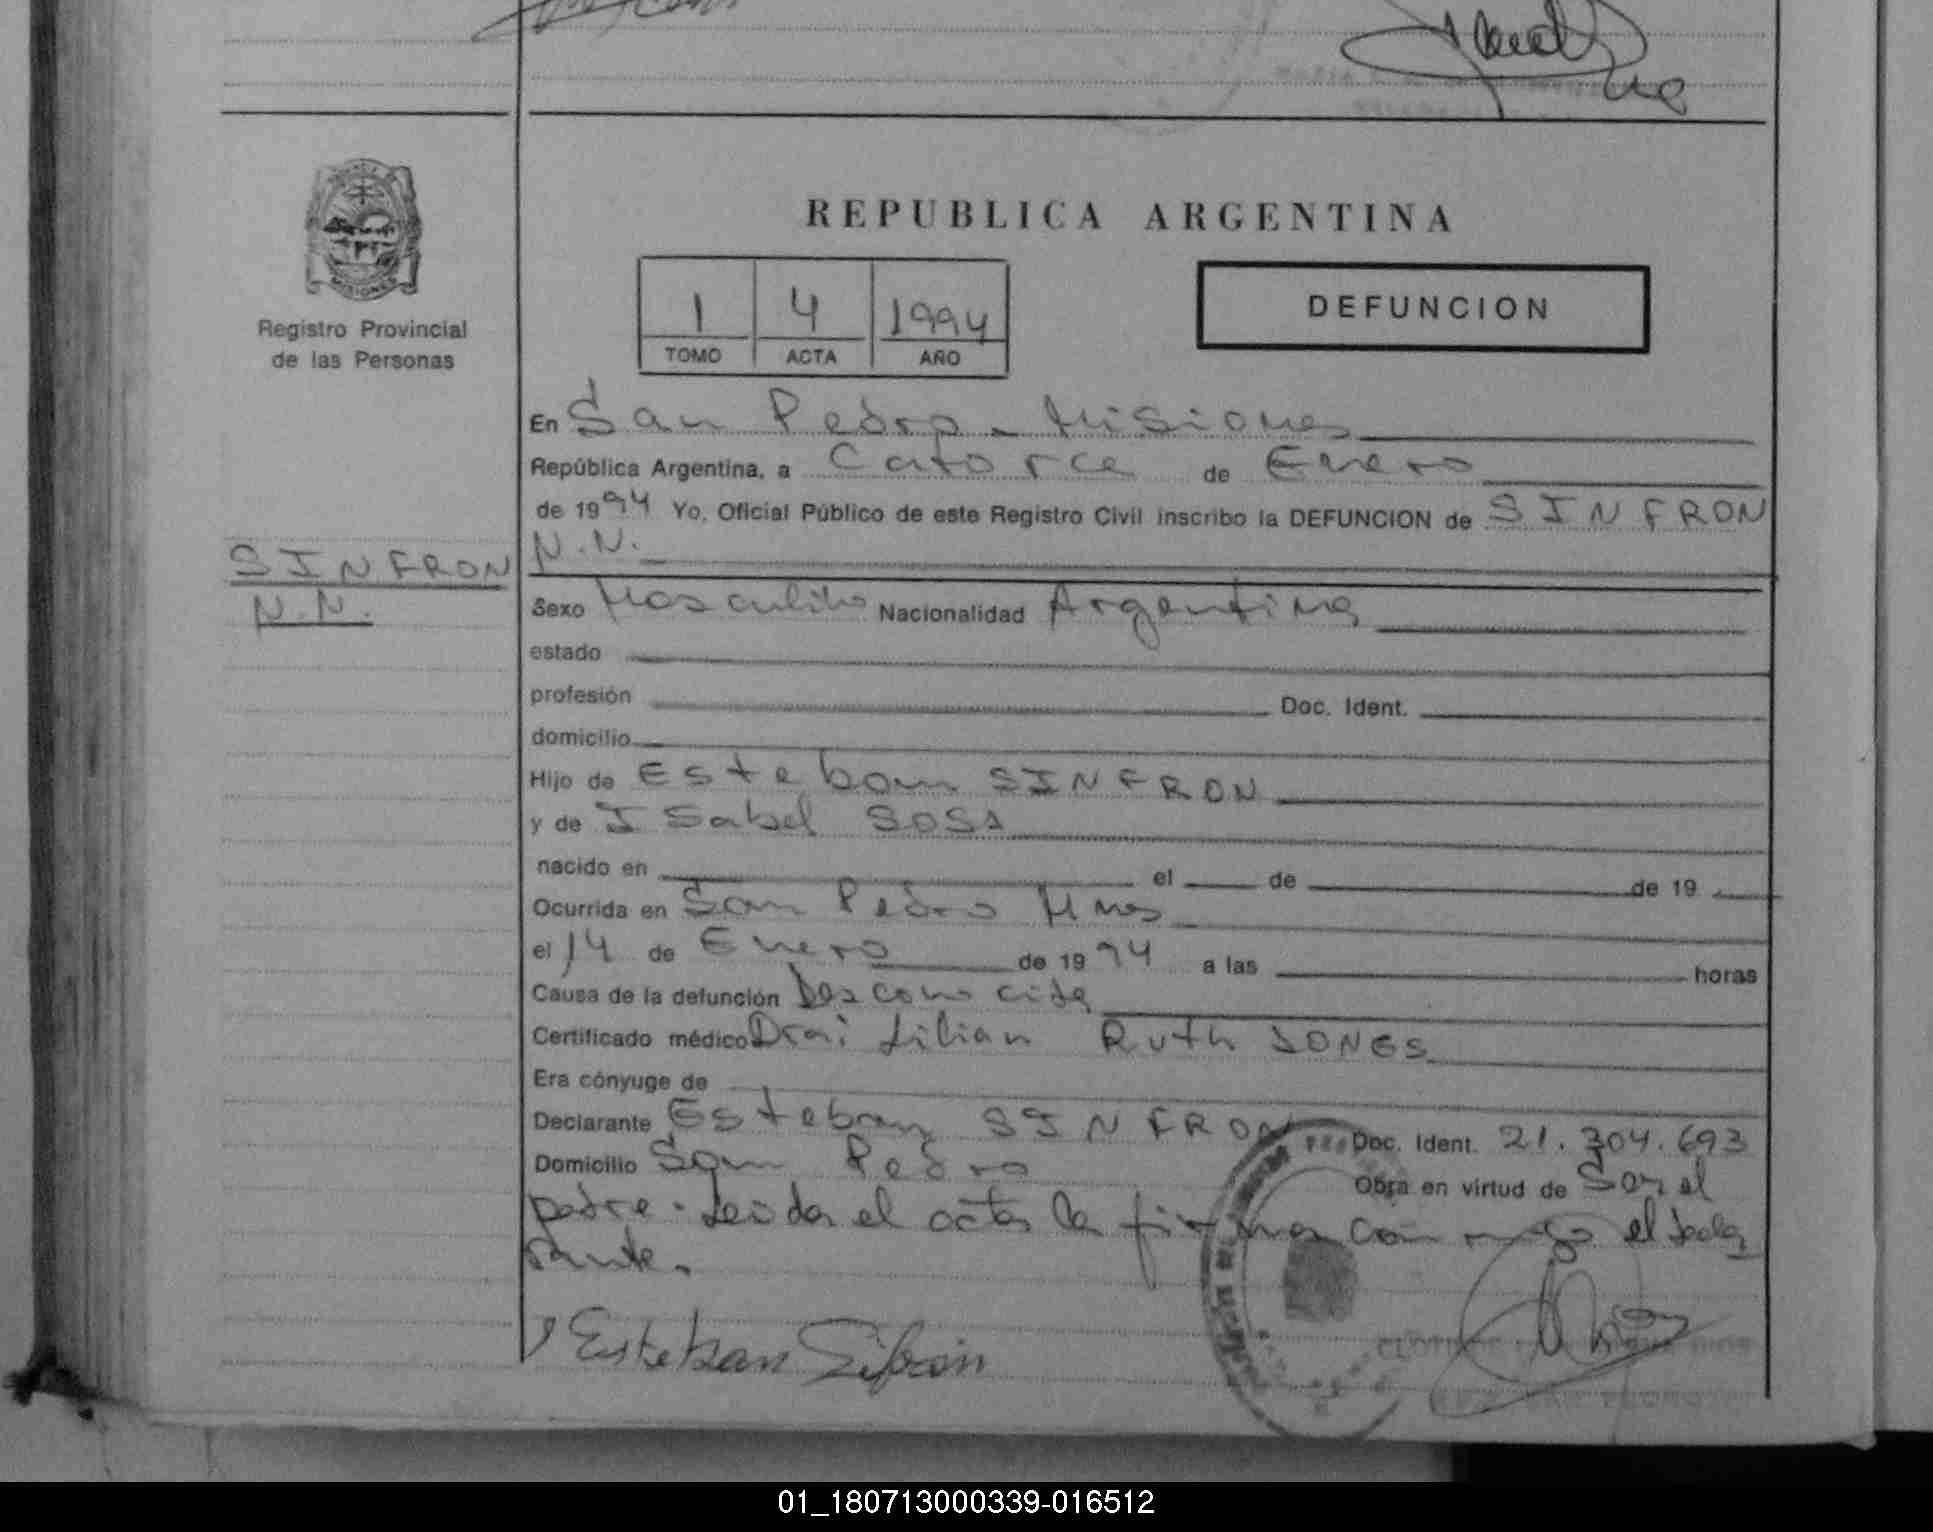 REPUBLICA ARGENTINA
MISIONES
Registro Provincial
de las Personas
1 4 1994
TOMO ACTA AÑO
DEFUNCION
En San Pedro - Misiones
República Argentina, a Catorce de Enero
de 1994 Yo, Oficial Público de este Registro Civil inscribo la DEFUNCION de SINFRON
N.N.
SINFRON
N.N.
Sexo Masculino Nacionalidad Argentina
estado
profesión Doc. Ident.
domicilio
Hijo de Esteban SINFRON
y de Isabel SOSA
nacido en el de de 19
Ocurrida en San Pedro Mnes
el 14 de Enero de 1994 a las horas
Causa de la defunción Desconocida
Certificado médico Dra: Lilian Ruth JONES
Era cónyuge de
Declarante Esteban SINFRON Doc. Ident. 21.304.693
Domicilio San Pedro Obra en virtud de Ser el
padre. Leida el acta la firma con migo el decla
rante.
Esteban Sifron
01_180713000339-016512